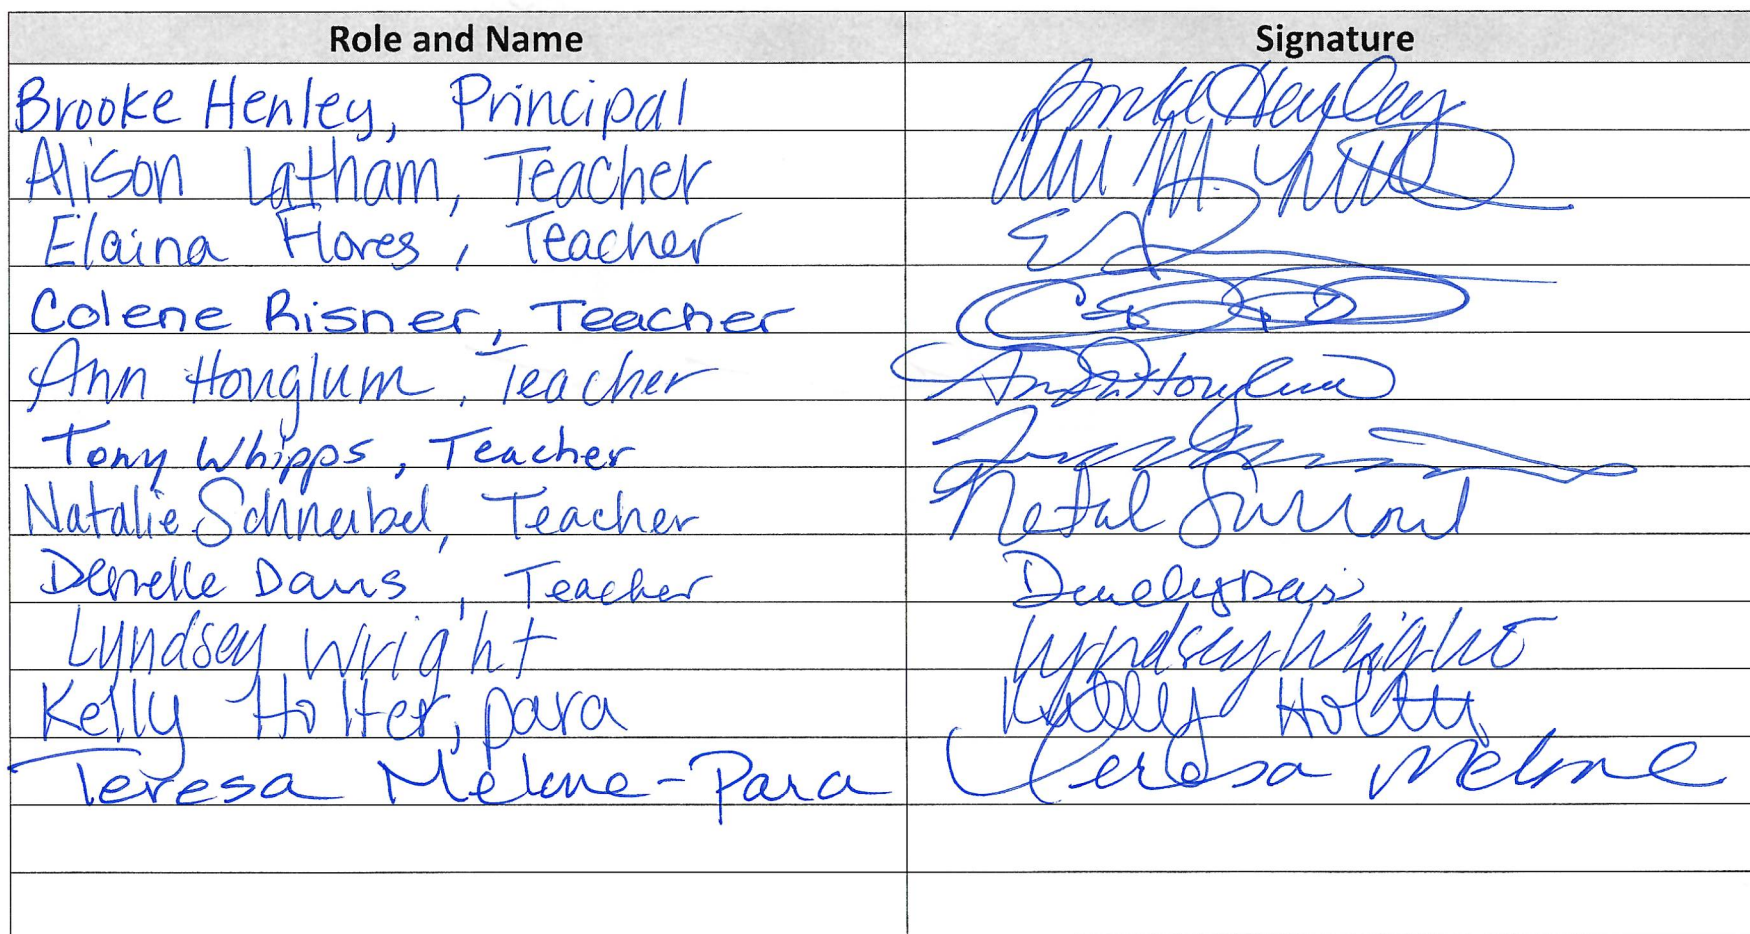 Role and Name Signature
Brooke Henley, Principal Brooke Henley
Alison Latham, Teacher
Elaina Flores, Teacher
Colene Risner, Teacher
Ann Houglum, Teacher Ann Houglum
Tony Whipps, Teacher
Natalie Schneibel, Teacher
Denelle Davis, Teacher
Lyndsey Wright Lyndsey Wright
Kelly Holter, para Kelly Holter
Teresa Melone-Para Teresa Melone